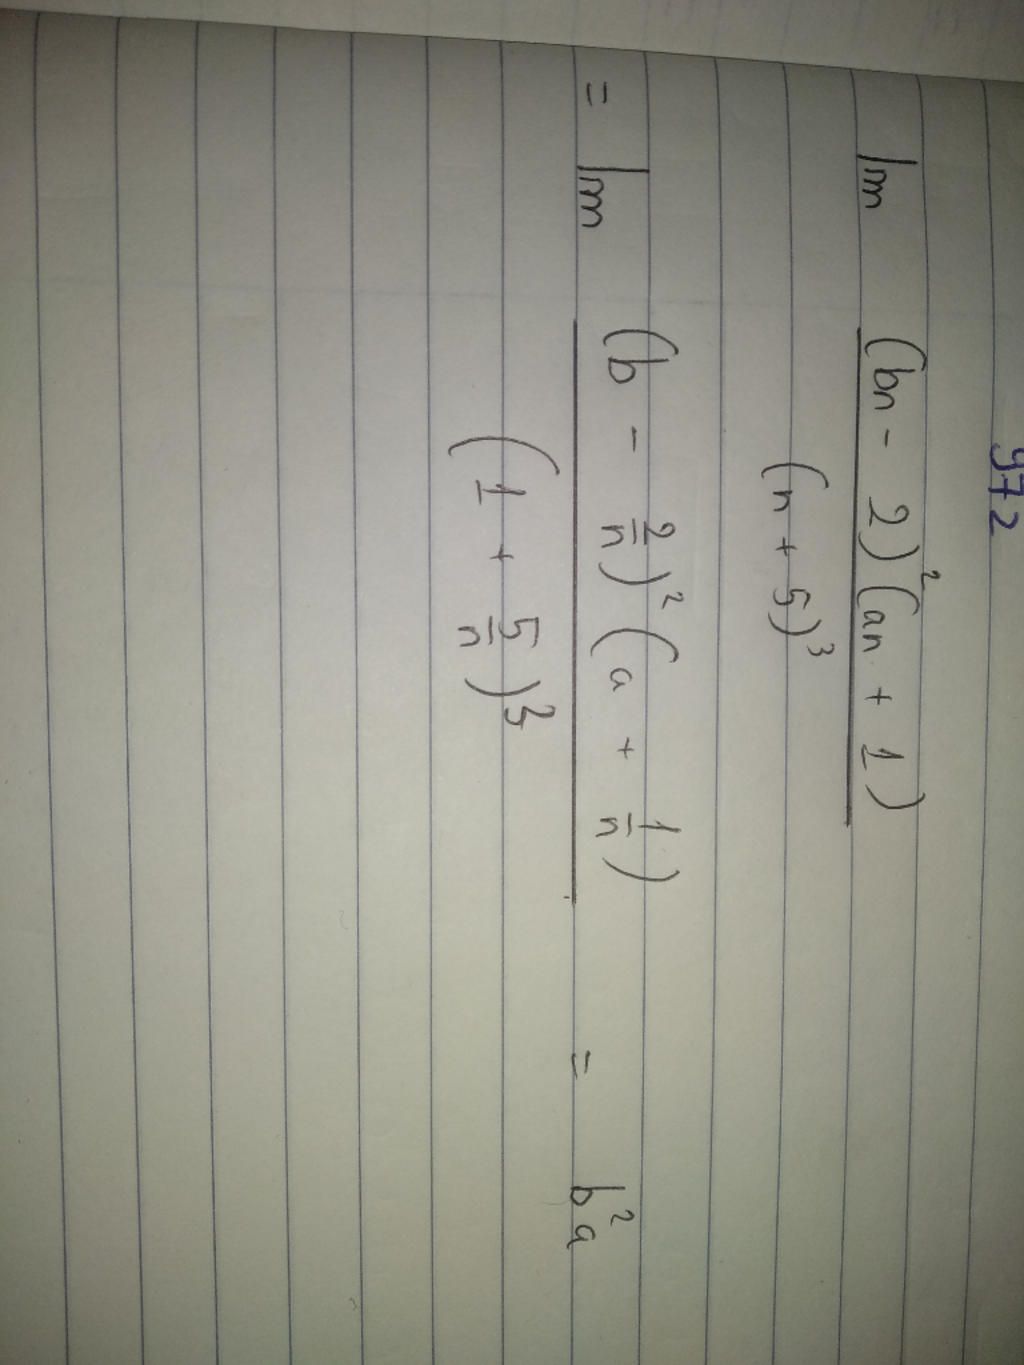 972
lim (bn - 2)²(an + 1)
(n + 5)³
= lim (b - 2/n)² (a + 1/n) = b²a
(1 + 5/n)³